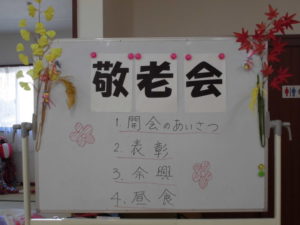 敬老会
1. 開会のあいさつ
2. 表彰
3. 余興
4. 昼食